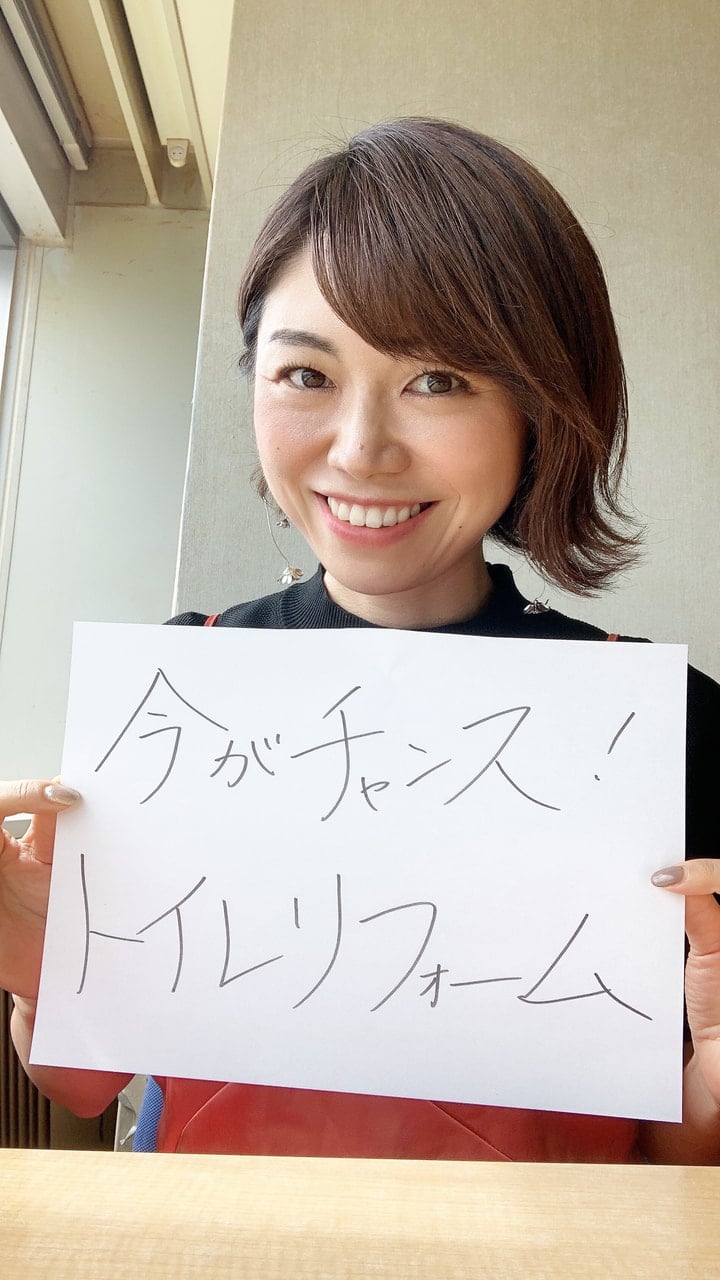 今がチャンス!
トイレリフォーム